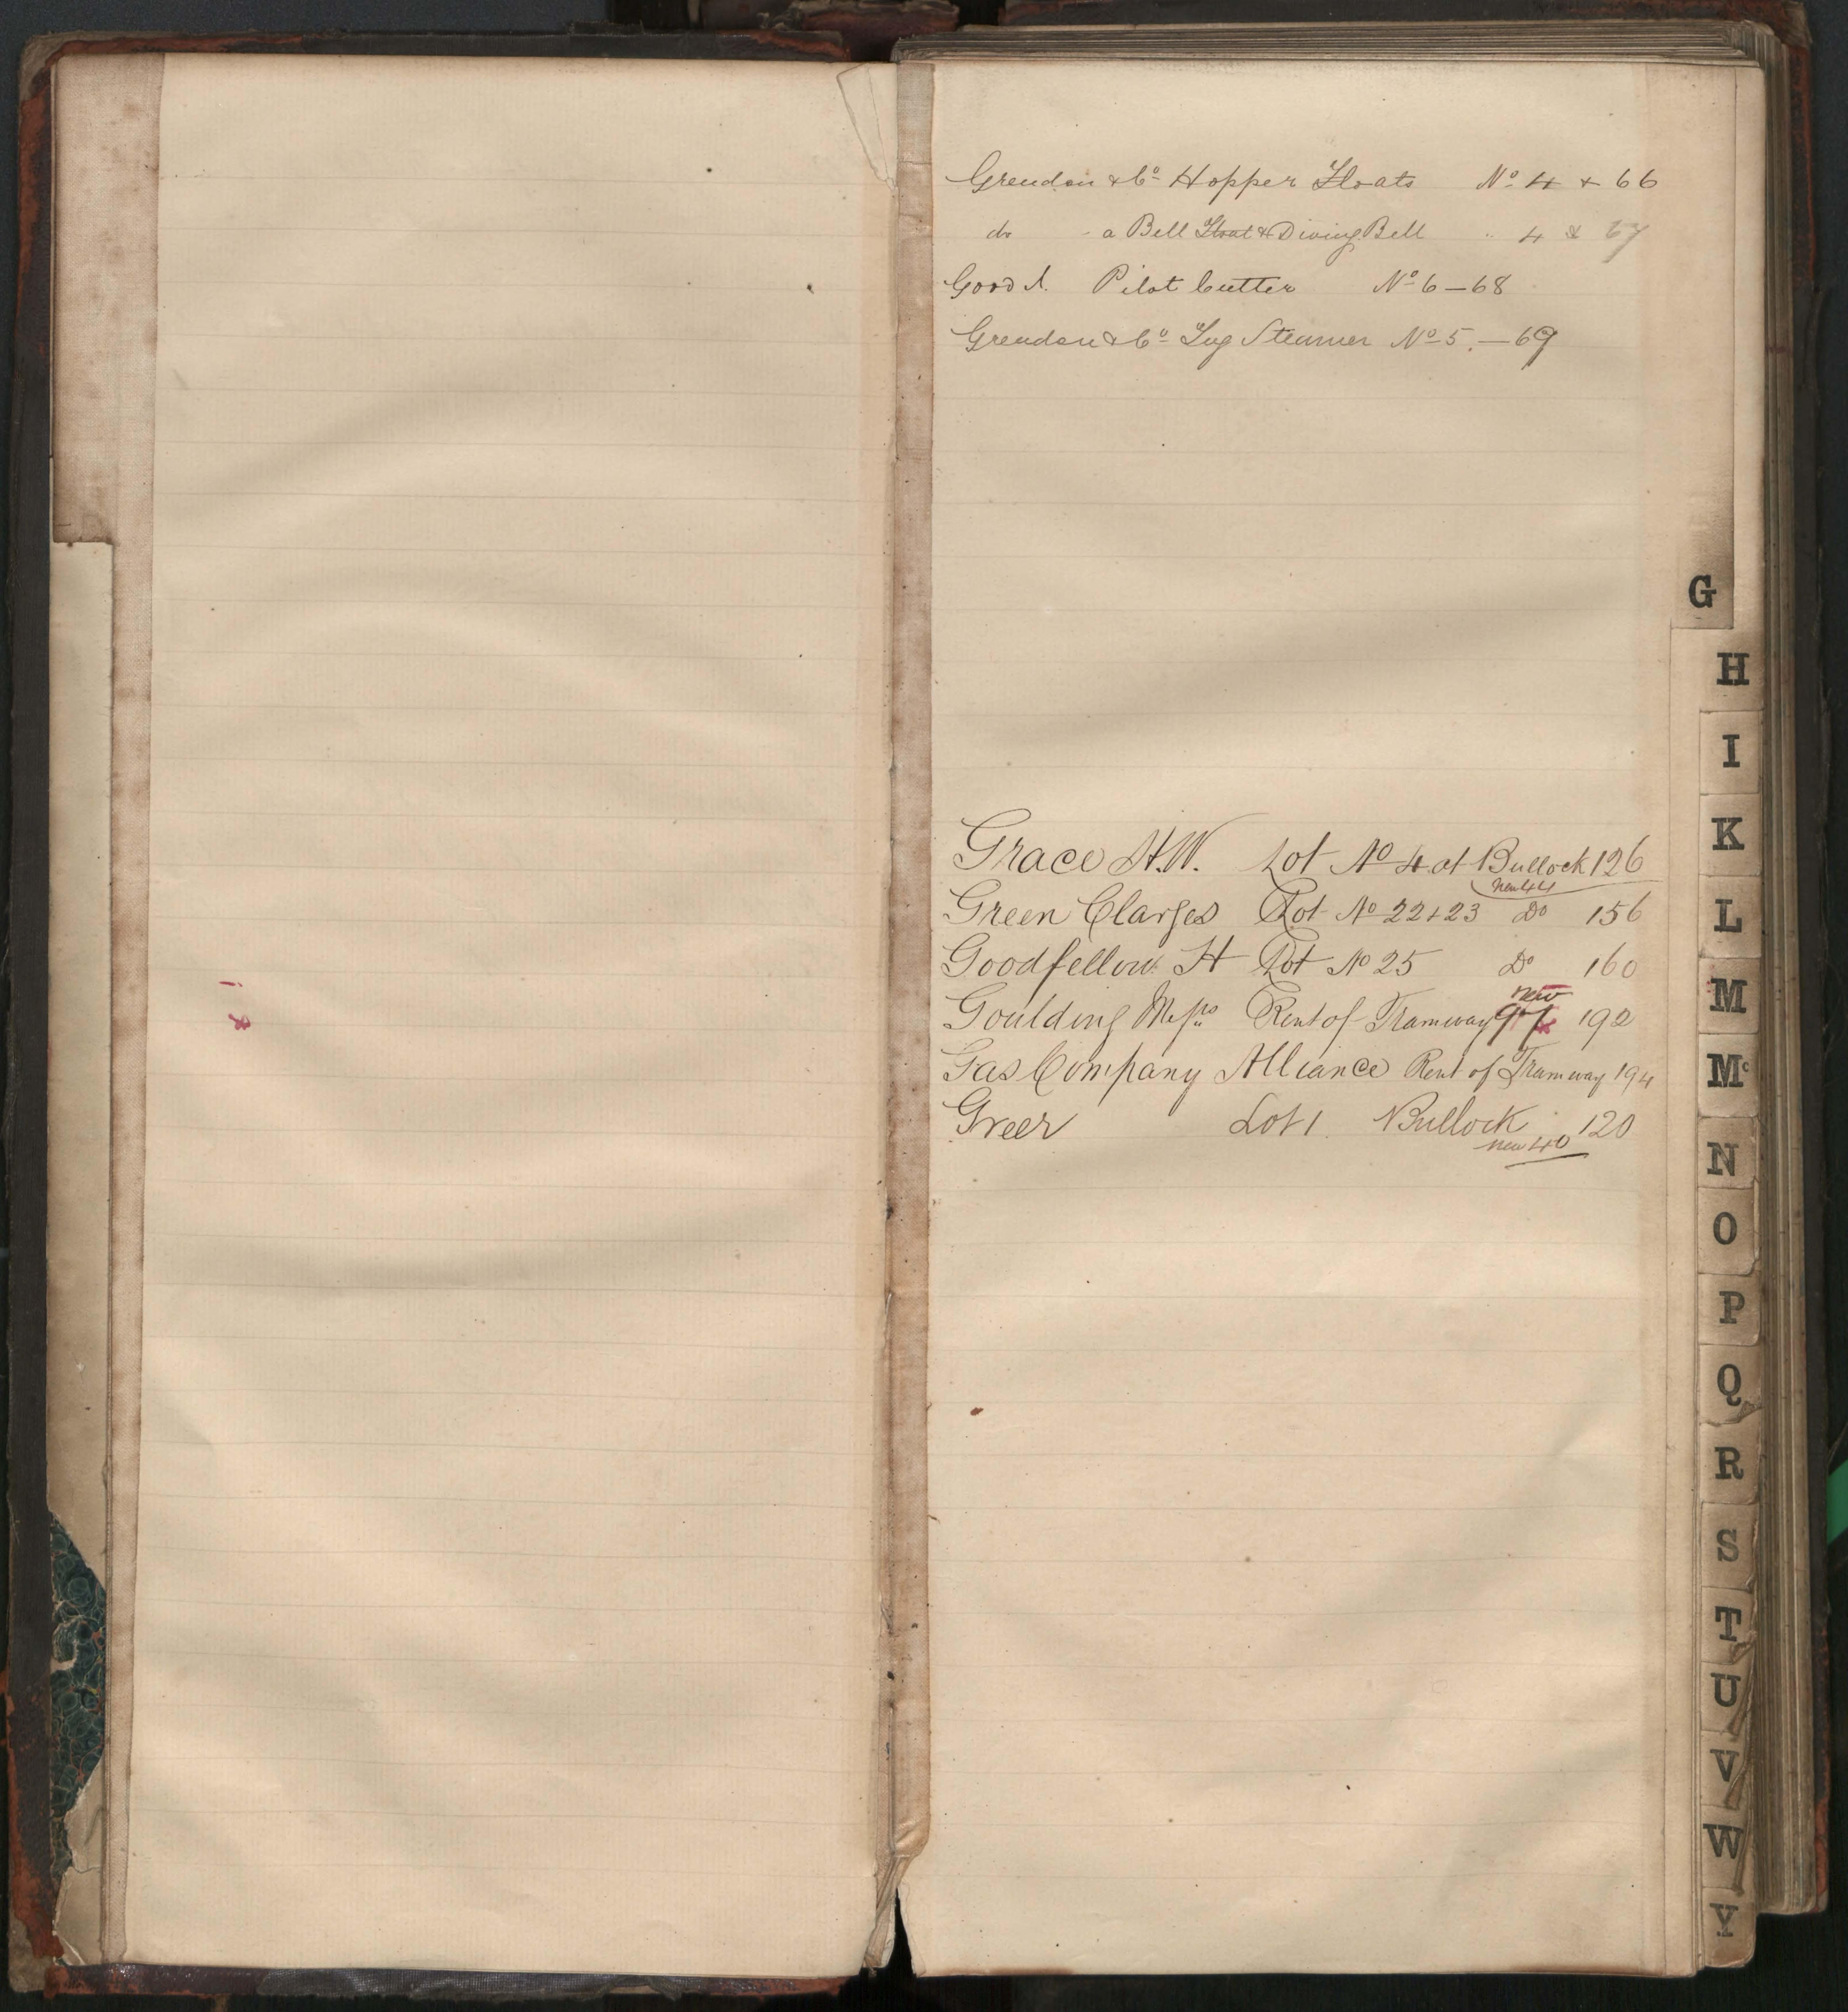 Grendon & Co Hopper Floats No 4 + 66
do a Bell Float & Diving Bell " 4 & 67
Good J. Pilot Cutter No 6 — 68
Grendon & Co Tug Steamer No 5. — 69
Grace H.W. Lot No 4 at Bullock 126
new 44
Green Clarges Lot No 22 + 23 Do 156
Goodfellow H Lot No 25 Do 160
new
Goulding Messrs Rent of Tramway 97 192
Gas Company Alliance Rent of Tramway 194
Greer Lot 1 Bullock 120
new 40
G
H
I
K
L
M
Mc
N
O
P
Q
R
S
T
U
V
W
Y